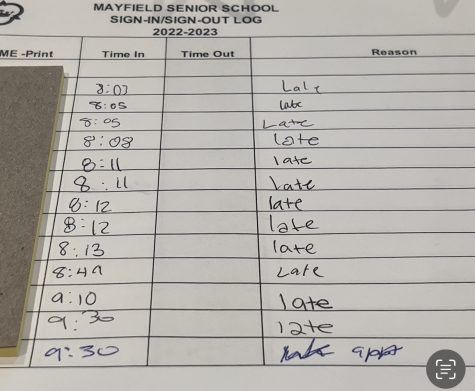 MAYFIELD SENIOR SCHOOL
SIGN-IN/SIGN-OUT LOG
2022-2023
ME -Print Time In Time Out Reason
8:03 Late
8:05 late
8:05 Late
8:08 late
8:11 late
8:11 late
8:12 late
8:12 late
8:13 late
8:49 Late
9:10 late
9:30 late
9:30 appt